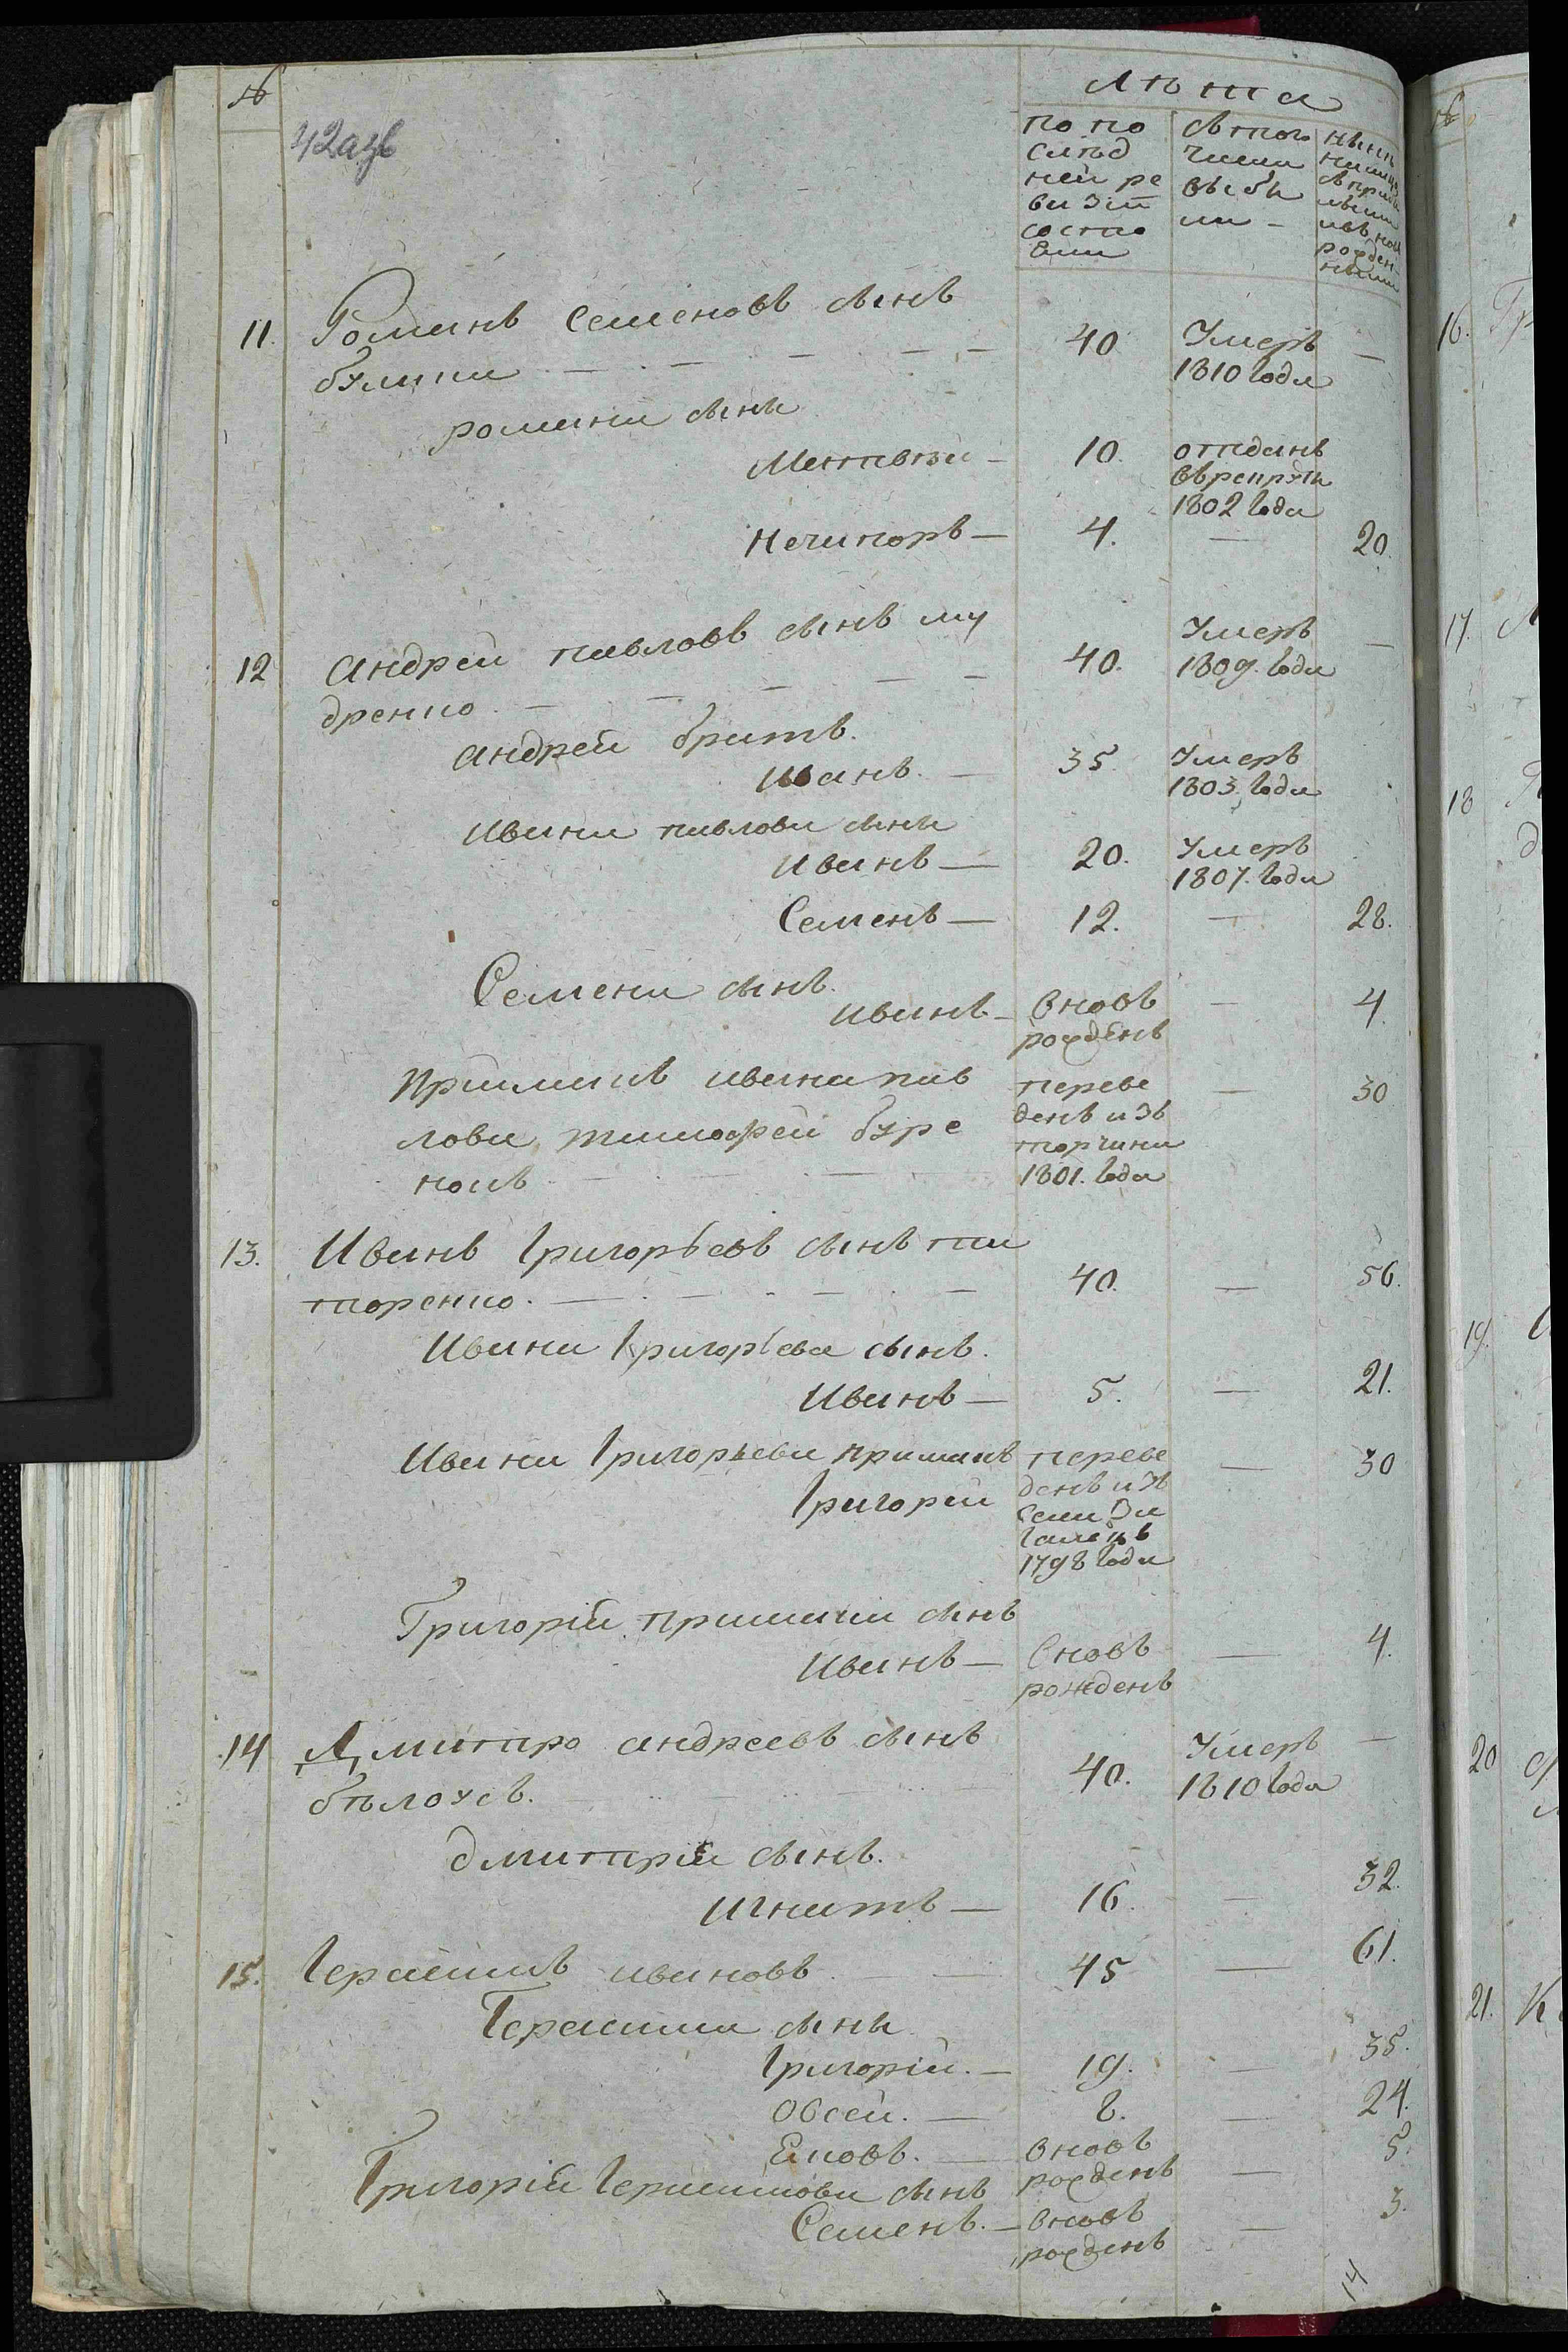 №
42 адв
Лѣта
по по
слѣд
ней ре
визіи
состо
яли
с того
числа
выбы
ли -
нынѣ
на лицо
с прибы
лыми
и вновь
рожден-
ными
11. Романъ Семеновъ сынъ
булика
40 Умеръ
1810 года —
романа сыны
Матвѣй — 10. отданъ
в рекруты
1802 года
Нечипоръ — 4. — 20.
12 Андрей павловъ сынъ му
дренко 40. Умеръ
1809. года —
андрея братъ.
иванъ. — 35. Умеръ
1803. года
ивана павлова сыны
иванъ — 20. Умеръ
1807. года
Семенъ — 12. — 28.
Семена сынъ.
иванъ — вновь
рожденъ — 4.
приймакъ ивана пав
лова, тимофей буре
ковъ
переве
денъ изъ
торчина
1801. года — 30
13. Иванъ Григорьевъ сынъ ти
торенко. 40. — 56.
Ивана Григорьева сынъ.
Иванъ — 5. — 21.
Ивана Григорьева примакъ
Григорей
переве
денъ изъ
села
1798 года — 30
Григорія примака сынъ
Иванъ — вновь
рожденъ — 4.
14 Дмитро андреевъ сынъ
бѣлоусъ. 40. Умеръ
1810 года —
дмитрія сынъ.
игнатъ — 16. — 32.
15. Герасимъ ивановъ 45 — 61.
Герасима сыны
Григорій. — 19. — 35.
Овсей. — 8. — 24.
Яковъ. — вновь
рожденъ — 5.
Григорія Герасимова сынъ
Семенъ. — вновь
рожденъ — 3.
14
№
16. Гр
17. А
18
д
19.
20
21. К